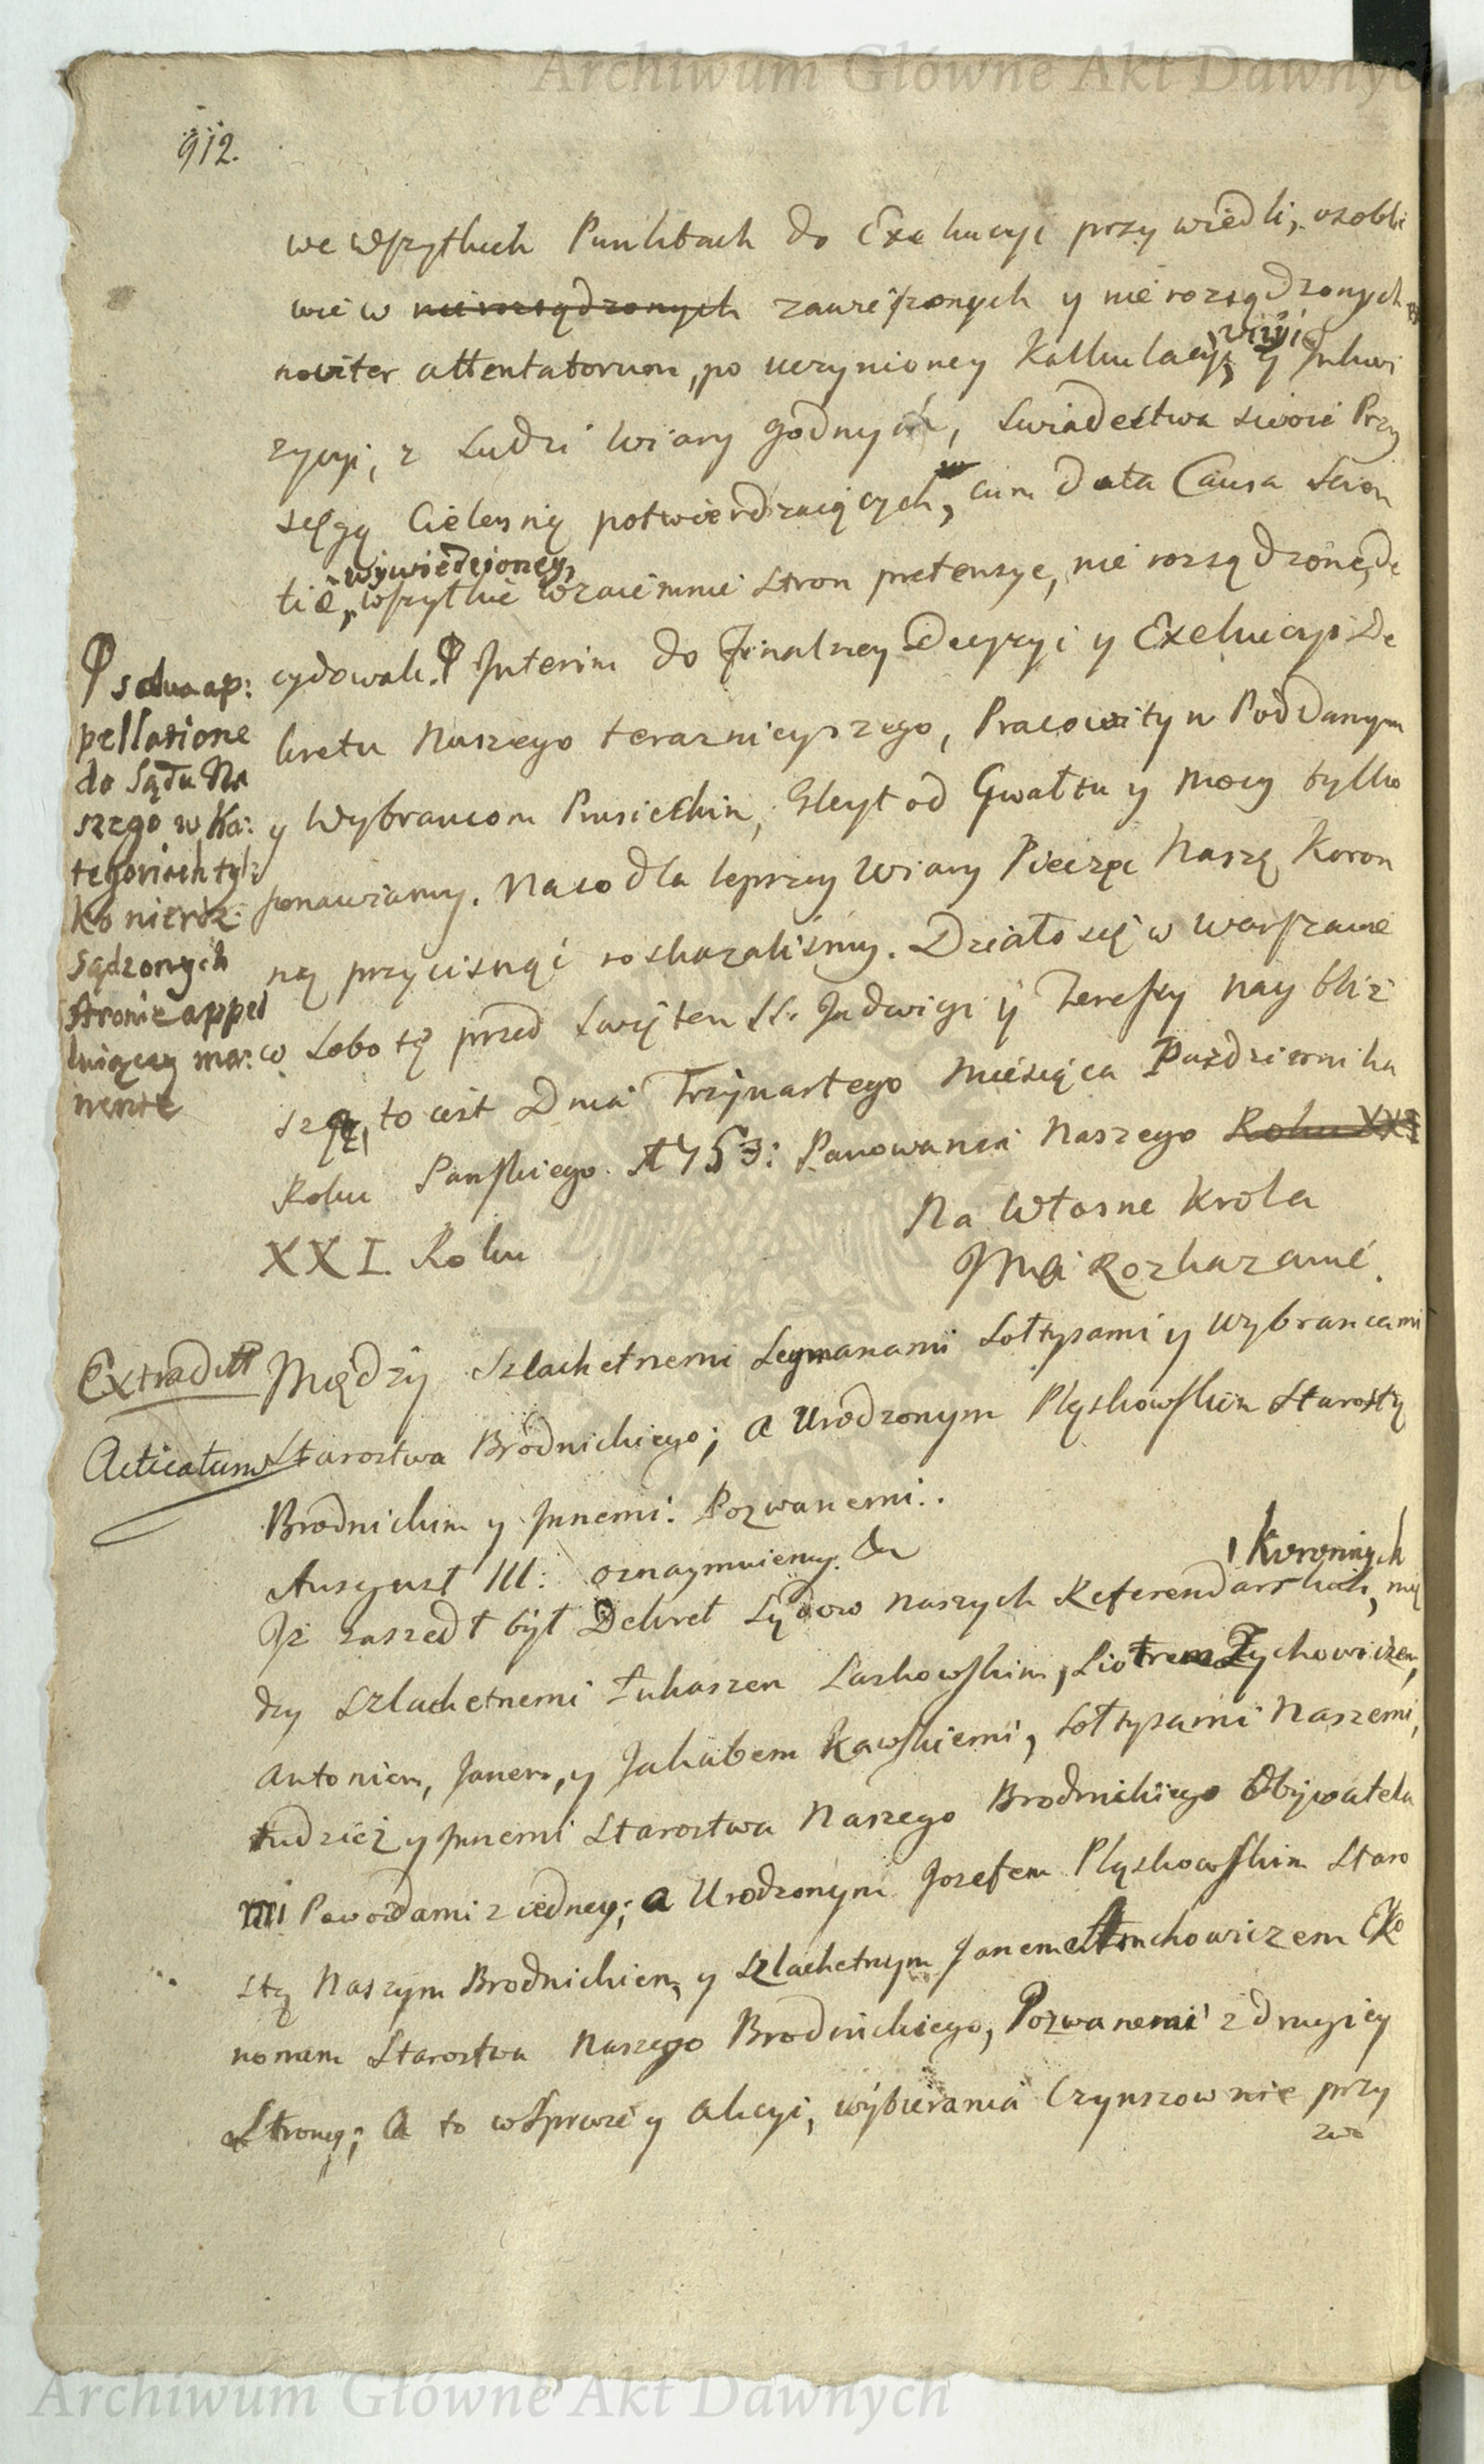 Archiwum Główne Akt Dawnych
912.
we wszytkich Punktach do Exekucyi przywiedli, osobli
wie w nierozsądzonych zawieszonych y nierozsądzonych
noviter attentatorum, po uczynioney Kalkulacyi, y Inkwi
zycyi, z Ludzi wiary godnych, Swiadectwa swoie Przy
sięgą Cielesnią potwierdzaiących, cum data Causa Scien
wywiedzioney,
tiæ, wszytkie wzaiemnie Stron pretensye, nie rozsądzone, de
cydowali. Interim do Finalney Decyzyi y Exekucyi De
kretu Naszego teraznieyszego, Pracowitym Poddanym
y Wybrancom Gleyt od Gwałtu y mocy tylko
ponawiamy. Na co dla lepszey Wiary Pieczęć Naszą Koron
ną przycisnąć roskazaliśmy. Działo się w Warszawie
w Sobotę przed Swiętem SS. Jadwigi y Teressy nay bliż
szą, to iest Dnia Trzynastego Miesiąca Pazdziernika
Roku Panskiego 1753: Panowania Naszego Roku XXI
XXI Roku
Na Własne Krola
Jmci Rozkazanie.
salva ap:
pellatione
do Sądu Na
szego w Ka:
tegoriach tyl:
ko nieroz:
sądzonych
Stronie appel
luiącey
Extradit
Acticatum
Między Szlachetnemi Leymanami Sołtysami y Wybrancami
Starostwa Brodnickiego; a Urodzonym Pląskowskim Starostą
Brodnickim y Innemi. Pozwanemi.
August III: oznaymuiemy.
Koronnych
Iż zaszedł był Dekret Sądow naszych Referendarskich, mię
dzy Szlachetnemi Łukaszem Laskowskim, Piotrem Zychowiczem,
Antonim, Janem, y Jakubem Kawskiemi, Sołtysami Naszemi,
tudziesz y Innemi Starostwa Naszego Brodnickiego Obywatela
mi Powodami z iedney; a Urodzonym Jozefem Pląskowskim Staro
stą Naszym Brodnickim, y Szlachetnym Janem Eko
nomem Starostwa Naszego Brodnickiego, Pozwanemi z drugiey
Strony; a to w Sprawie y Akcyi, wybierania Czynszow nie przy
zwo
Archiwum Główne Akt Dawnych